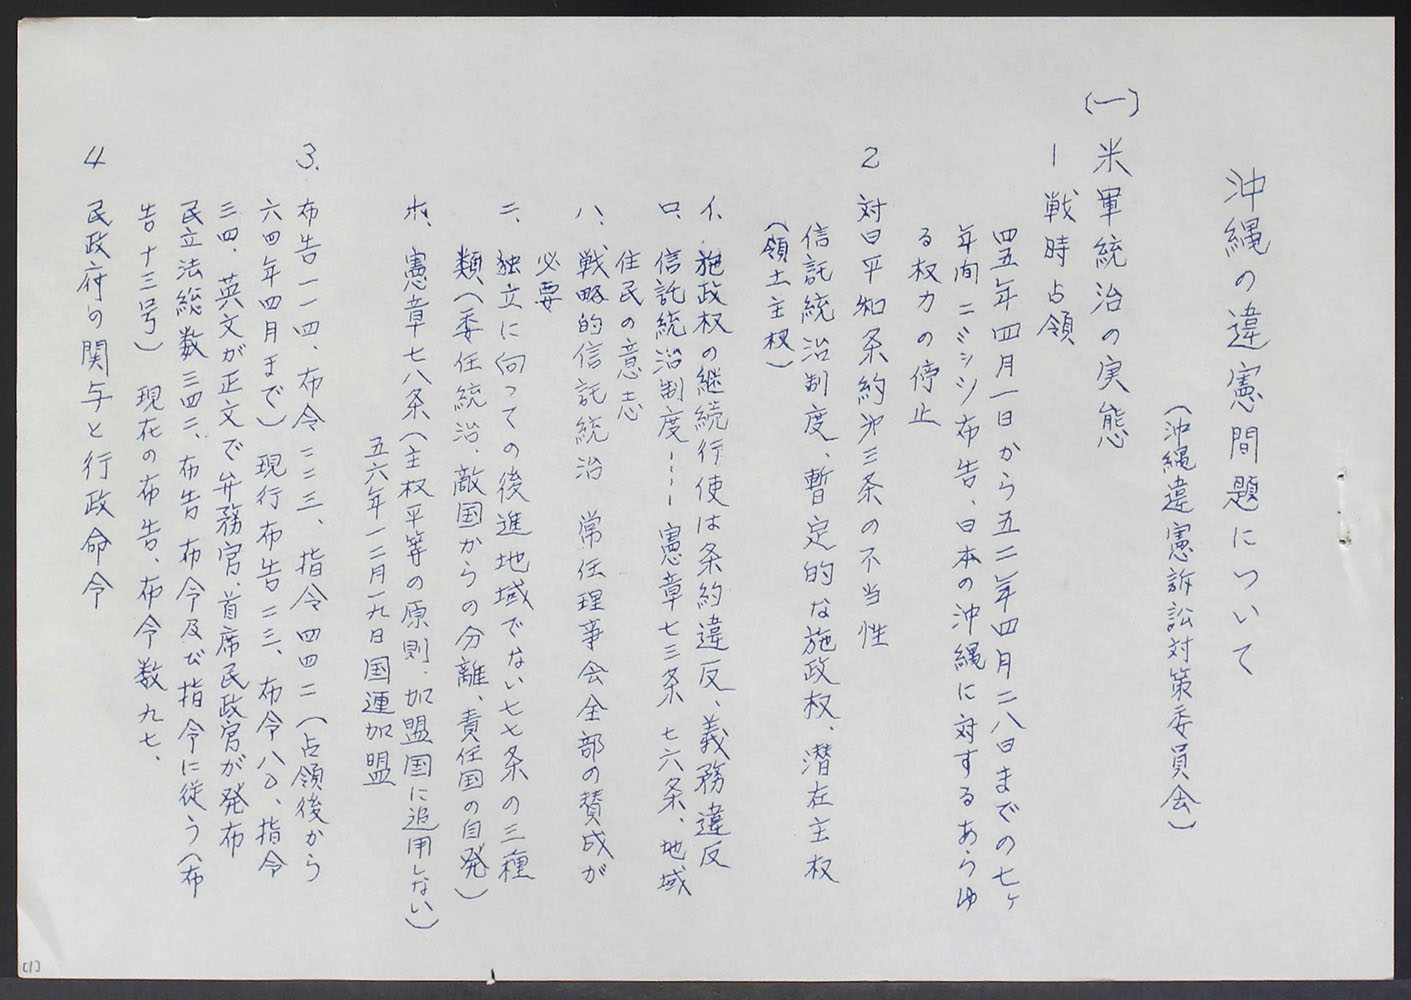 沖縄の違憲問題について
(沖縄違憲訴訟対策委員会)
(一)米軍統治の実態
1 戦時占領
四五年四月一日から五二年四月二八日までの七ヶ
年间ニミッツ布告、日本の沖縄に対するあらゆ
る权力の停止
2 対日平和条約㐧三条の不当性
信託統治制度、暫定的な施政权、潜在主权
(領土主权)
イ、施政权の継続行使は条約違反、義務違反
ロ、信託統治制度----憲章七三条 七六条、地域
住民の意志
ハ、戦略的信託統治 常任理事会全部の賛成が
必要
ニ、独立に向っての後進地域でない七七条の三種
類(委任統治、敵国からの分離、責任国の自発)
ホ、憲章七八条(主权平等の原則、加盟国に追用しない)
五六年一二月一九日国連加盟
3. 布告一一四、布令二三三、指令四四二(占領後から
六四年四月まで)現行布告二三、布令八〇、指令
三四、英文が正文で弁務官、首席民政官が発布
民立法総数三四二、布告 布令及び指令に従う(布
告十三号) 現在の布告、布令数九七、
4 民政府の関与と行政命令
(1)